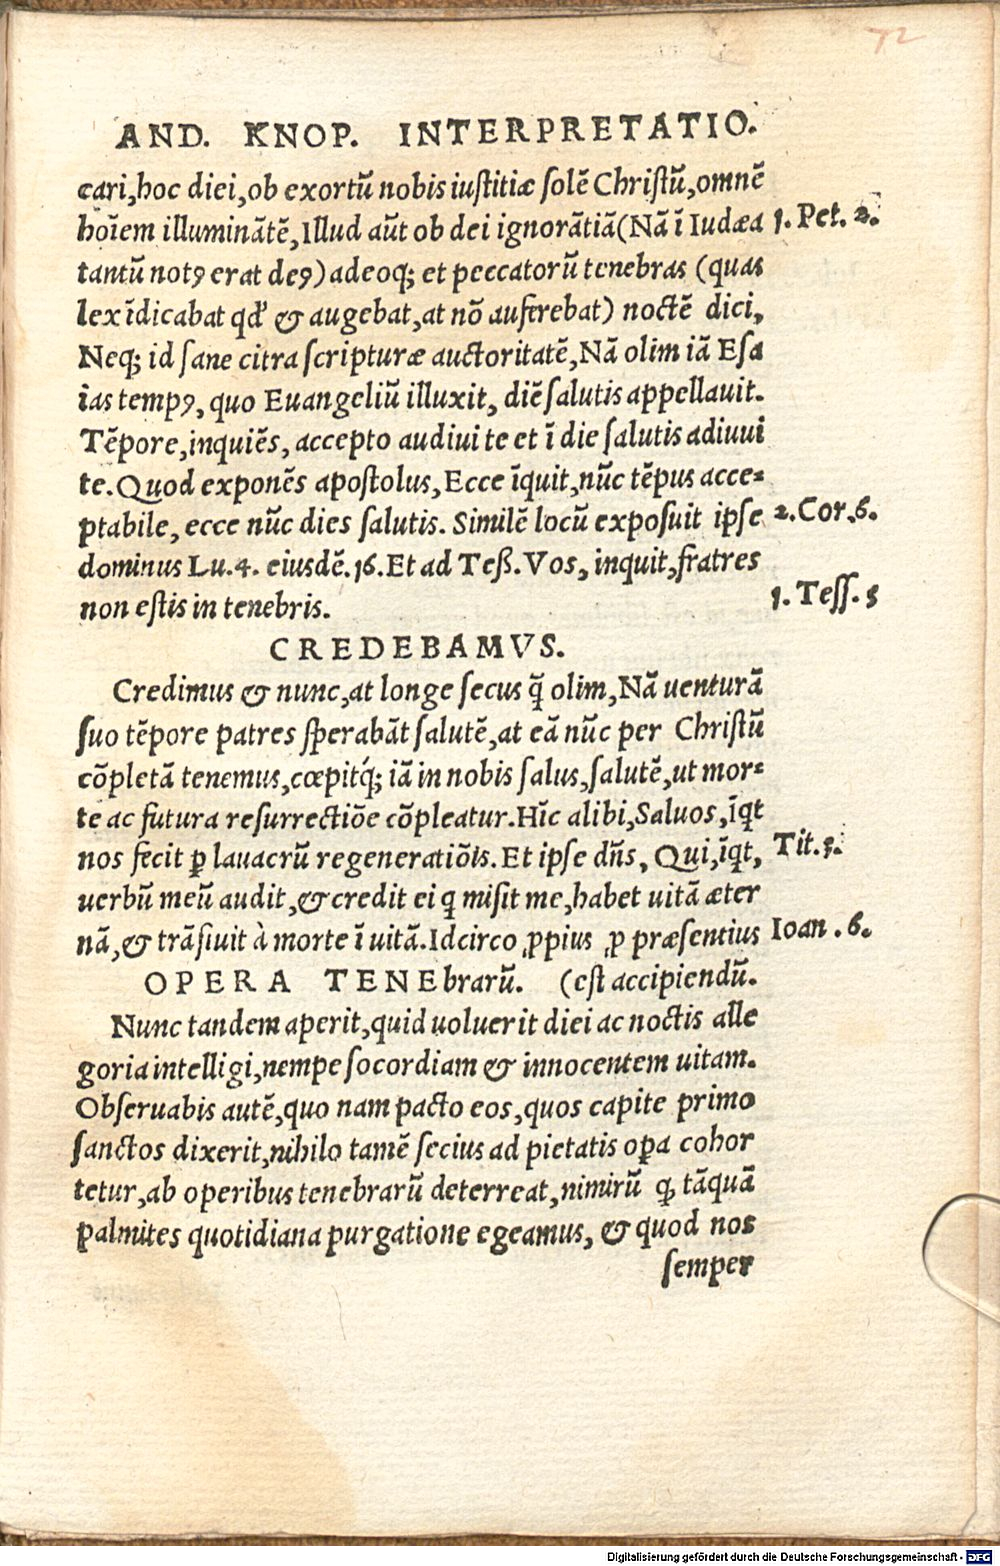 72
AND. KNOP. INTERPRETATIO.
cari, hoc diei, ob exortũ nobis iustitiæ solẽ Christũ, omnẽ
hoĩem illuminãtẽ, Illud aũt ob dei ignorãtiã (Nã ĩ Iudæa 1. Pet. 2.
tantũ notꝰ erat deꝰ) adeoq; et peccatorũ tenebras (quas
lex ĩdicabat qd' & augebat, at nõ auferebat) noctẽ dici,
Neq; id sane citra scripturæ auctoritatẽ, Nã olim iã Esa
ias tempꝰ, quo Euangeliũ illuxit, diẽ salutis appellauit.
Tẽpore, inquiẽs, accepto audiui te et ĩ die salutis adiuui
te. Quod exponẽs apostolus, Ecce ĩquit, nũc tẽpus acce-
ptabile, ecce nũc dies salutis. Similẽ locũ exposuit ipse 2. Cor. 6.
dominus Lu. 4. eiusdẽ. 16. Et ad Teß. Vos, inquit, fratres
non estis in tenebris. 1. Tess. 5
CREDEBAMVS.
Credimus & nunc, at longe secus q̃ olim, Nã uenturã
suo tẽpore patres sperabãt salutẽ, at eã nũc per Christũ
cõpletã tenemus, cœpitq́; iã in nobis salus, salutẽ, ut mor-
te ac futura resurrectiõe cõpleatur. Hĩc alibi, Saluos, ĩqt
nos fecit ꝑ lauacrũ regeneratiõis. Et ipse dñs, Qui, ĩqt, Tit. 3.
uerbũ meũ audit, & credit ei q misit me, habet uitã æter
nã, & trãsiuit à morte ĩ uitã. Idcirco ꝓpius ꝓ præsentius Ioan. 6.
OPERA TENEbrarũ. (est accipiendũ.
Nunc tandem aperit, quid uoluerit diei ac noctis alle
goria intelligi, nempe socordiam & innocentem uitam.
Obseruabis autẽ, quo nam pacto eos, quos capite primo
sanctos dixerit, nihilo tamẽ secius ad pietatis oꝑa cohor
tetur, ab operibus tenebrarũ deterreat, nimirũ q; tãquã
palmites quotidiana purgatione egeamus, & quod nos
semper
Digitalisierung gefördert durch die Deutsche Forschungsgemeinschaft - DFG